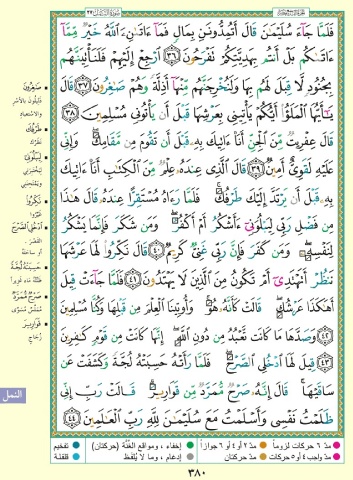 سورة النمل ٢٧
فَلَمَّا جَآءَ سُلَيْمَٰنَ قَالَ أَتُمِدُّونَنِ بِمَالٍ فَمَآ ءَاتَىٰنِۦَ ٱللَّهُ خَيْرٌ مِّمَّآ
ءَاتَىٰكُم بَلْ أَنتُم بِهَدِيَّتِكُمْ تَفْرَحُونَ ٣٦ ٱرْجِعْ إِلَيْهِمْ فَلَنَأْتِيَنَّهُم
بِجُنُودٍ لَّا قِبَلَ لَهُم بِهَا وَلَنُخْرِجَنَّهُم مِّنْهَآ أَذِلَّةً وَهُمْ صَٰغِرُونَ ٣٧ قَالَ
يَٰٓأَيُّهَا ٱلْمَلَؤُا۟ أَيُّكُمْ يَأْتِينِى بِعَرْشِهَا قَبْلَ أَن يَأْتُونِى مُسْلِمِينَ ٣٨
قَالَ عِفْرِيتٌ مِّنَ ٱلْجِنِّ أَنَا۠ ءَاتِيكَ بِهِۦ قَبْلَ أَن تَقُومَ مِن مَّقَامِكَ وَإِنِّى
عَلَيْهِ لَقَوِىٌّ أَمِينٌ ٣٩ قَالَ ٱلَّذِى عِندَهُۥ عِلْمٌ مِّنَ ٱلْكِتَٰبِ أَنَا۠ ءَاتِيكَ
بِهِۦ قَبْلَ أَن يَرْتَدَّ إِلَيْكَ طَرْفُكَ فَلَمَّا رَءَاهُ مُسْتَقِرًّا عِندَهُۥ قَالَ هَٰذَا
مِن فَضْلِ رَبِّى لِيَبْلُوَنِىٓ ءَأَشْكُرُ أَمْ أَكْفُرُ وَمَن شَكَرَ فَإِنَّمَا يَشْكُرُ
لِنَفْسِهِۦ وَمَن كَفَرَ فَإِنَّ رَبِّى غَنِىٌّ كَرِيمٌ ٤٠ قَالَ نَكِّرُوا۟ لَهَا عَرْشَهَا
نَنظُرْ أَتَهْتَدِىٓ أَمْ تَكُونُ مِنَ ٱلَّذِينَ لَا يَهْتَدُونَ ٤١ فَلَمَّا جَآءَتْ قِيلَ
أَهَٰكَذَا عَرْشُكِ قَالَتْ كَأَنَّهُۥ هُوَ وَأُوتِينَا ٱلْعِلْمَ مِن قَبْلِهَا وَكُنَّا مُسْلِمِينَ
٤٢ وَصَدَّهَا مَا كَانَت تَّعْبُدُ مِن دُونِ ٱللَّهِ إِنَّهَا كَانَتْ مِن قَوْمٍ كَٰفِرِينَ
٤٣ قِيلَ لَهَا ٱدْخُلِى ٱلصَّرْحَ فَلَمَّا رَأَتْهُ حَسِبَتْهُ لُجَّةً وَكَشَفَتْ عَن
سَاقَيْهَا قَالَ إِنَّهُۥ صَرْحٌ مُّمَرَّدٌ مِّن قَوَارِيرَ قَالَتْ رَبِّ إِنِّى
ظَلَمْتُ نَفْسِى وَأَسْلَمْتُ مَعَ سُلَيْمَٰنَ لِلَّهِ رَبِّ ٱلْعَٰلَمِينَ ٤٤
صَاغِرُونَ
ذليلون بالأسر
والاستعباد
طَرْفُكَ
نظرك
لِيَبْلُوَنِي
ليختبرني
ويمتحنني
نَكِّرُوا
غيّروا
ادْخُلِي الصَّرْحَ
القصر
حَسِبَتْهُ لُجَّةً
صَرْحٌ مُّمَرَّدٌ
قَوَارِيرَ
زجاج
النمل
مدّ ٦ حركات لزوماً
مدّ ٢ أو ٤ أو ٦ جوازاً
إخفاء، ومواقع الغُنَّة (حركتان)
تفخيم
مدّ واجب ٤ أو ٥ حركات
مدّ حركتان
إدغام، وما لا يُلفَظ
قلقلة
٣٨٠